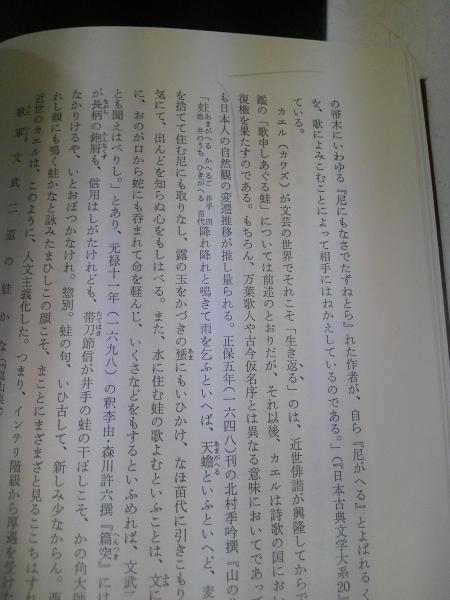 の帚木にいわゆる『尼にもなさでたずねとら』れた作者が、自ら『尼がへる』とよばれるく
を、歌によみこむことによって相手にはねかえしているのである。」(『日本古典文学大系20』
ている。
カエル(カワズ)が文芸の世界でそれこそ「生き返る」のは、近世俳諧が興隆してからで
鑑の「歌申しあぐる蛙」については前述のとおりだが、それ以後、カエルは詩歌の国におい
復権を果たすのである。もちろん、万葉歌人や古今仮名序とは異なる意味においてであって
も日本人の自然観の変遷推移が推し量られる。正保五年(一六四八)刊の北村季吟撰『山の
「蛙 あまがへる かへるご 井手 田 池 井のうち ひきがへる 苗代 降れ降れと鳴きて雨を乞ふといへば、天蟾といふといへど、麦
を捨てて住む尼にも取りなし、露の玉をかづきの蜑にもいひかけ、なほ苗代に引きこもり
気にて、出んどを知らぬ心をもしはべる。また、水に住む蛙の歌よむといふことは、文に
に、おのが口から蛇にも呑まれて命を軽んじ、いくさなどをもするといふめれば、文武二
とも聞えはべりし。」とあり、元禄十一年(一六九八)の釈李由・森川許六撰『篇突』には
が、長柄の鉋屑も、信用はしがたけれども、帯刀節信が井手の蛙の干ぼしこそ、かの角大師
なかりけるや、いとおぼつかなけれ。惣別。蛙の句、いひ古して、新しみ少なからん。両
れし顔にも鳴く蛙かなと詠みたまひしこの顔こそ、まことにまざまざと見るここちはすれ
近世のカエルは、このように、人文主義化した。つまり、インテリ階級から厚遇を受けた
歌軍文武二道の蛙かな